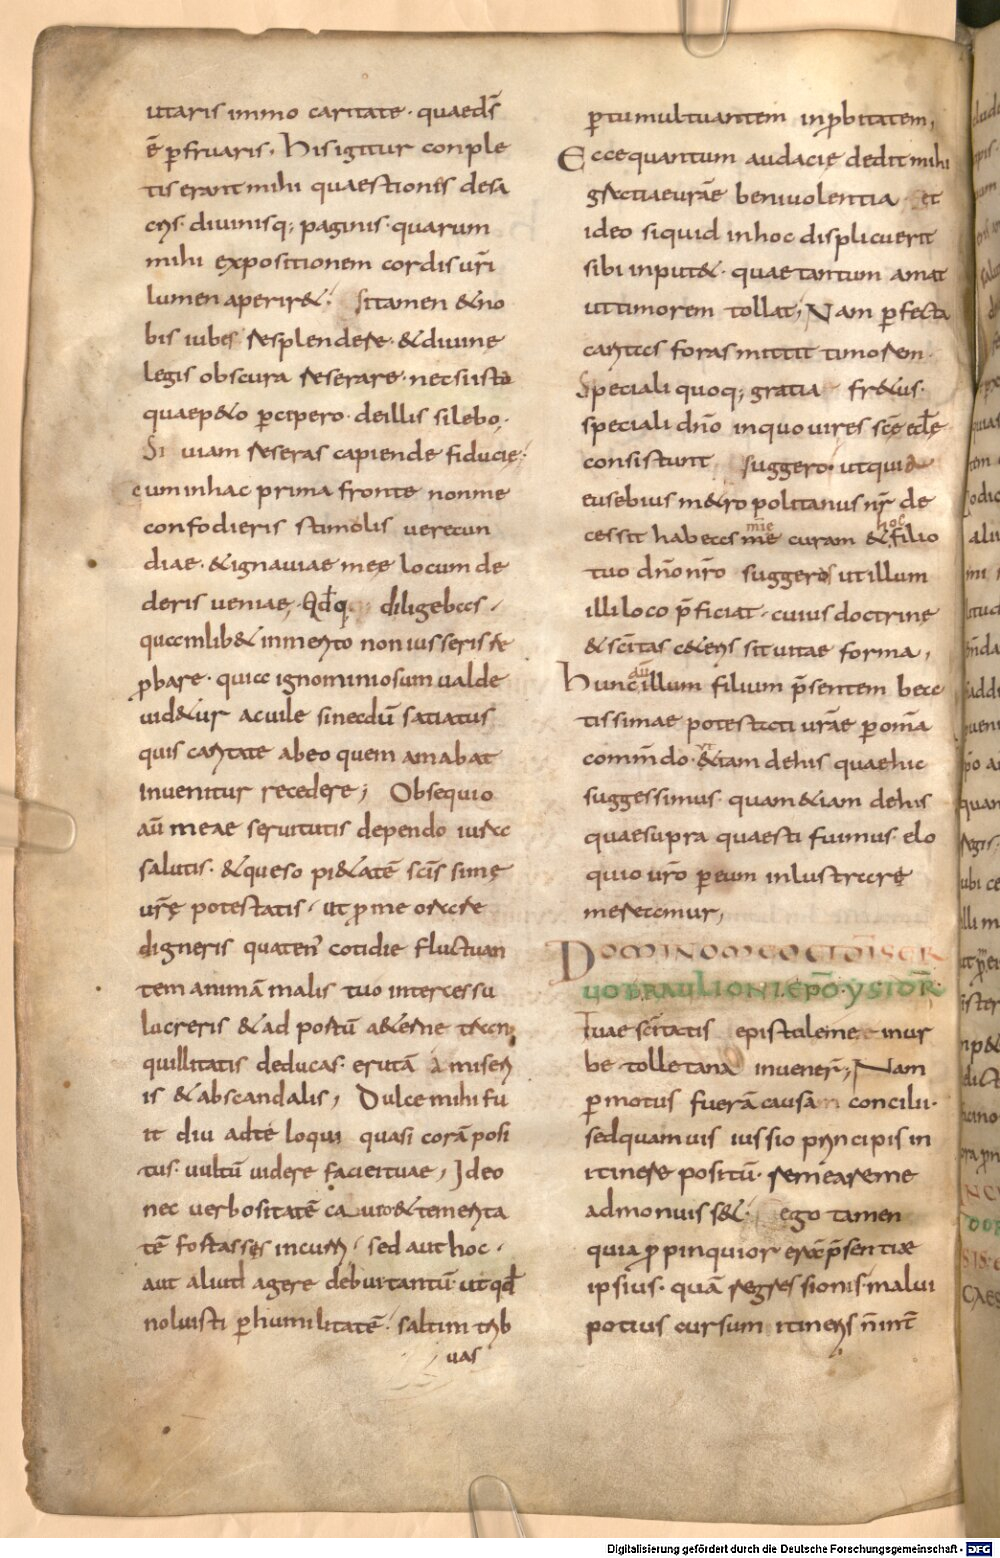 utaris immo caritate · quaed̅s̅
ē p̲fruaris · hisigitur conple
tis erant mihi quaestiones desa
cris · diuinisq; paginis · quarum
mihi expositionem cordis ur̅i
lumen aperir& · sitamen &no
bis iubes resplendere · &diuine
legis obscura reserare · necsiista
quaep&o p̲cipero · deillis silebo ·
Si uiam reseras capiende fiducie ·
cuminhac prima fronte nonme
confodieris stimolis uerecun
diae · &ignauiae meę locum de
deris ueniae, diligebas ·
quemlib& inmerito non iusseris re
probare · quia ignominiosum ualde
uid&ur acuile sinecdū satiatus
quis caritate abeo quem amabat
Inuenitur recedere; Obsequio
aū meae seruitutis dependo iura
salutis · &queso pi&atē sc̅is simę
ur̅ę potestatis · ut p̲ me orare
digneris quaten' cotidie fluctuan
tem animā malis tuo intercessu
lucreris & ad portū a&erne tran
quillitatis deducas · erutā a miseri
is & abscandalis; Dulce mihi fu
it diu adte loqui quasi corā posi
tus · uultū uidere facieituae; Ideo
nec uerbositatē caui &temerita
tē fortasses incurri · sed aut hoc ·
aut aliud agere debui tantū · ut qd̅
noluisti p̲humilitatē · saltim trib
uas
p̲tumultuantem inp̲bitatem,
Eccequantum audacię dedit mihi
gratiaeur̅ae beniuolentia · et
ideo siquid inhoc displicuerit
sibi input& · quae tantum amat
uttimorem tollat; Nam p̲fecta
caritas foras mittit timorem ·
Speciali quoq; gratia fr&us ·
speciali dn̅o inquo uires sc̅ę ecl̅ę
consistunt suggero · utquia
eusebius m&ropolitanus nr̅ de
cessit habeas mie me curam & hoc filio
tuo dn̅o nr̅o suggeras utillum
illi loco p̅ficiat · cuius doctrine
& sc̅itas c&eris sit uitae forma,
Hunc aū illum filium p̅sentem bea
tissimae potestati ur̅ae p̲ om̅a
comm̅do · ut &tam dehis quaehic
suggessimus · quam&iam dehis
quaesupra quaesti fuimus · elo
quio ur̅o p̲ eum inlustrare
mereamur,
DOMINO MEO ET D̅I SER
UO BRAULIONI EPŌ · YSIDOR̅
Tuae sc̅itatis epistuleme inur
be tolletana inuener̅; Nam
p̲motus fuerā causa concilii ·
sedquamuis iussio principis in
itinere positū · remeareme
admonuisset · ego tamen
quia p̲pinquior erā p̅sentiae
ipsius · quā regressionis · malui
potius cursum itineris n̅ int̅